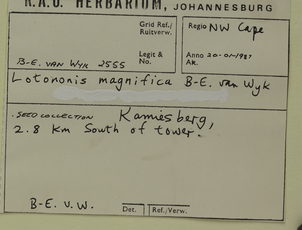 R.A.U. HERBARIUM, JOHANNESBURG
Grid Ref./
Ruitverw.
Regio NW Cape
Legit &
No.
B-E. van Wyk 2555
Anno 20-01-1987
Ak.
Lotononis magnifica B-E. van Wyk
SEED COLLECTION Kamiesberg,
2.8 km South of tower.
B-E. v. W.
Det.
Ref./Verw.